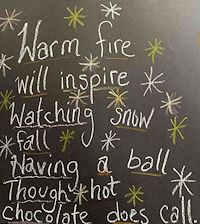 Warm fire
will inspire
Watching snow
fall
Having a ball
Though hot
chocolate does call.